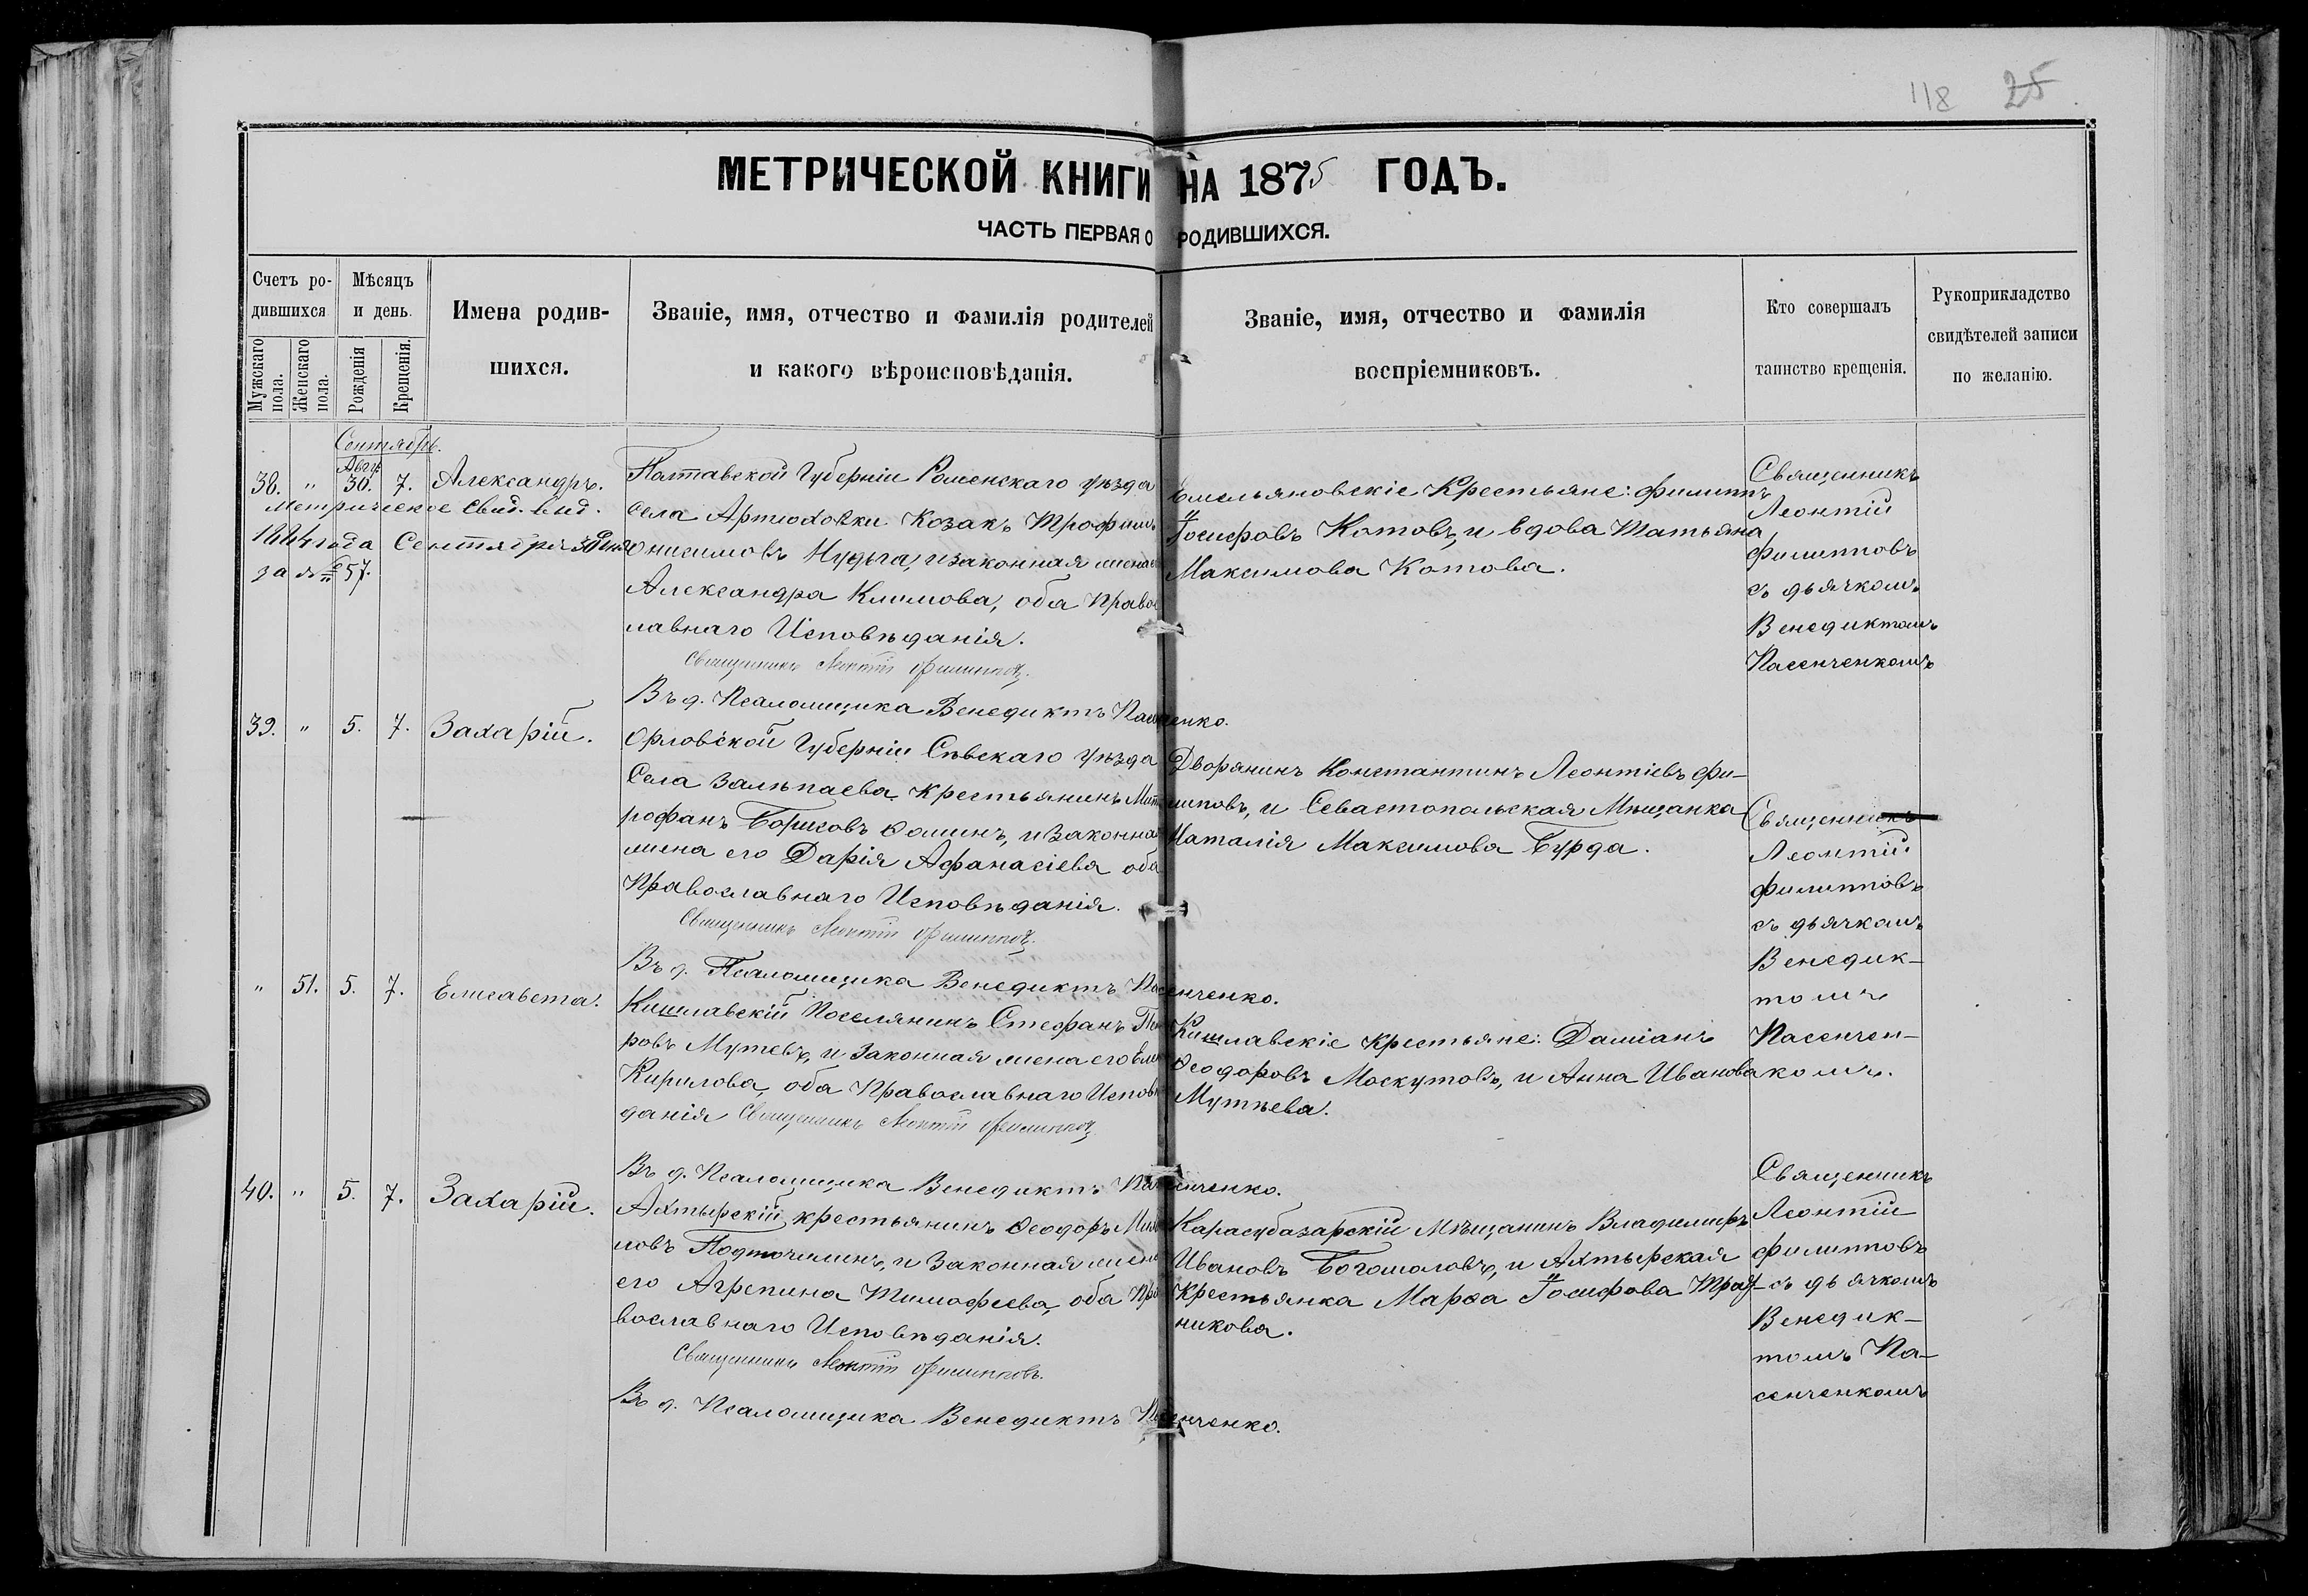 118 25
МЕТРИЧЕСКОЙ КНИГИ НА 1875 ГОДЪ.
ЧАСТЬ ПЕРВАЯ О РОДИВШИХСЯ.
Счетъ ро-
дившихся
Мужскаго пола.
Женскаго пола.
Мѣсяцъ
и день.
Рожденія
Крещенія.
Имена родив-
шихся.
Званіе, имя, отчество и фамилія родителей
и какого вѣроисповѣданія.
Званіе, имя, отчество и фамилія
воспріемниковъ.
Кто совершалъ
таинство крещенія.
Рукоприкладство
свидѣтелей записи
по желанію.
Сентябрь.
Авгу.
38. " 30. 7. Александръ.
Метрическое Свид. выд.
1884 года Сентября 30 дня
за № 57.
Полтавской Губерніи Роменскаго уѣзда
села Артюховки Козакъ Трофимъ
Онисимовъ Мудрга, и законная жена его
Александра Климова, оба Правос
лавнаго Исповѣданія.
Священникъ Леонтій Филипповъ.
Въ д. Псаломщика Венедиктъ Пасенченко.
Емельяновскіе Крестьяне: Филиппъ
Іосифовъ Котовъ, и вдова Татьяна
Максимова Котова.
Священникъ
Леонтій
Филипповъ
съ дьячкомъ
Венедиктомъ
Пасенченкомъ
39. " 5. 7. Захарій.
Орловской Губерніи Сѣвскаго уѣзда
Села Зальпаева Крестьянинъ Мит
рофанъ Борисовъ Ѳоминъ, и Законная
жена его Дарія Афанасіева оба
Православнаго Исповѣданія.
Священникъ Леонтій Филипповъ.
Въ д. Псаломщика Венедиктъ Пасенченко.
Дворянинъ Константинъ Леонтіевъ Фи-
липовъ, и Севастопольская Мѣщанка
Наталія Максимова Бурда.
Священникъ
Леонтій
Филипповъ
съ дьячкомъ
Венедик-
томъ
Пасенчен-
комъ.
" 51. 5. 7. Елисавета.
Кишлавскій Поселянинъ Стефанъ Пет
ровъ Мутевъ, и Законная жена его
Кирилова, оба Православнаго Исповѣ
данія Священникъ Леонтій Филипповъ
Въ д. Псаломщика Венедиктъ Пасенченко.
Кишлавскіе Крестьяне: Даміанъ
Ѳеодоровъ Москутовъ, и Анна Иванова
Мутьева.
40. " 5. 7. Захарій.
Ахтырскій крестьянинъ Ѳеодоръ
ловъ Подточилинъ, и Законная жена
его Агрепина Тимофеева, оба Пра
вославнаго Исповѣданія.
Священникъ Леонтій Филипповъ.
Въ д. Псаломщика Венедиктъ Пасенченко.
Карасубазарскій Мѣщанинъ Владимиръ
Ивановъ Богомоловъ, и Ахтырская
Крестьянка Марѳа Іосифова
никова.
Священникъ
Леонтій
Филипповъ
съ дьячкомъ
Венедик-
томъ Па-
сенченкомъ